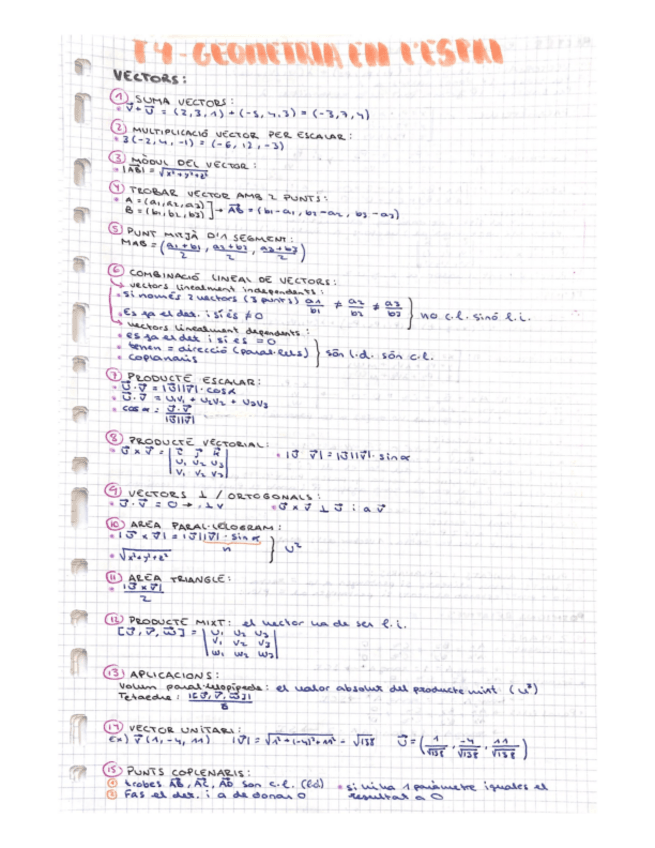 T4 - GEOMETRIA EN L'ESPAI
VECTORS:
① SUMA VECTORS:
• V⃗ + U⃗ = (2,3,1) + (-5,4,3) = (-3,7,4)
② MULTIPLICACIÓ VECTOR PER ESCALAR:
• 3(-2,4,-1) = (-6,12,-3)
③ MÒDUL DEL VECTOR:
• |AB⃗| = √x²+y²+z²
④ TROBAR VECTOR AMB 2 PUNTS:
• A = (a1,a2,a3)
B = (b1,b2,b3) ] → AB⃗ = (b1-a1, b2-a2, b3-a3)
⑤ PUNT MITJÀ D'1 SEGMENT:
MAB = (a1+b1/2, a2+b2/2, a3+b3/2)
⑥ COMBINACIÓ LINEAL DE VECTORS:
↳ vectors linealment independents:
• si només 2 vectors (3 punts) a1/b1 ≠ a2/b2 ≠ a3/b3
• Es fa el det. i si és ≠ 0 } no c.l. sinó l.i.
↳ vectors linealment dependents:
• es fa el det i si es = 0
• tenen = direcció (paral·lels) } són l.d. són c.l.
• coplanaris
⑦ PRODUCTE ESCALAR:
• U⃗·V⃗ = |U⃗||V⃗|·cosα
• U⃗·V⃗ = U1V1 + U2V2 + U3V3
• cos α = U⃗·V⃗/|U⃗||V⃗|
⑧ PRODUCTE VECTORIAL:
• U⃗ x V⃗ = | i⃗ j⃗ k⃗ | • |U⃗ V⃗| = |U⃗||V⃗|·sin α
U1 U2 U3
V1 V2 V3
⑨ VECTORS ⊥ / ORTOGONALS:
• U⃗·V⃗ = 0 → ⊥ V • U⃗ x V⃗ ⊥ U⃗ i a V⃗
⑩ AREA PARAL·LELOGRAM:
• |U⃗ x V⃗| = |U⃗||V⃗|·sin α
h } U²
• √x²+y²+z²
⑪ AREA TRIANGLE:
• |U⃗ x V⃗|/2
⑫ PRODUCTE MIXT: el vector ha de ser l.i.
[U⃗, V⃗, W⃗] = | U1 U2 U3 |
V1 V2 V3
W1 W2 W3
⑬ APLICACIONS:
Volum paral·lelopípede: el valor absolut del producte mixt. (U³)
Tetaedre: |[U⃗,V⃗,W⃗]|/6
⑭ VECTOR UNITARI:
Ex) V⃗ (1,-4,11) |V⃗| = √1²+(-4)²+11² = √138 U⃗ = (1/√138, -4/√138, 11/√138)
⑮ PUNTS COPLENARIS:
① trobes AB⃗, AC⃗, AD⃗ son c.l. (ld) • si hi ha 1 paràmetre iguales el
② Fas el det. i a de donar 0 resultat a 0